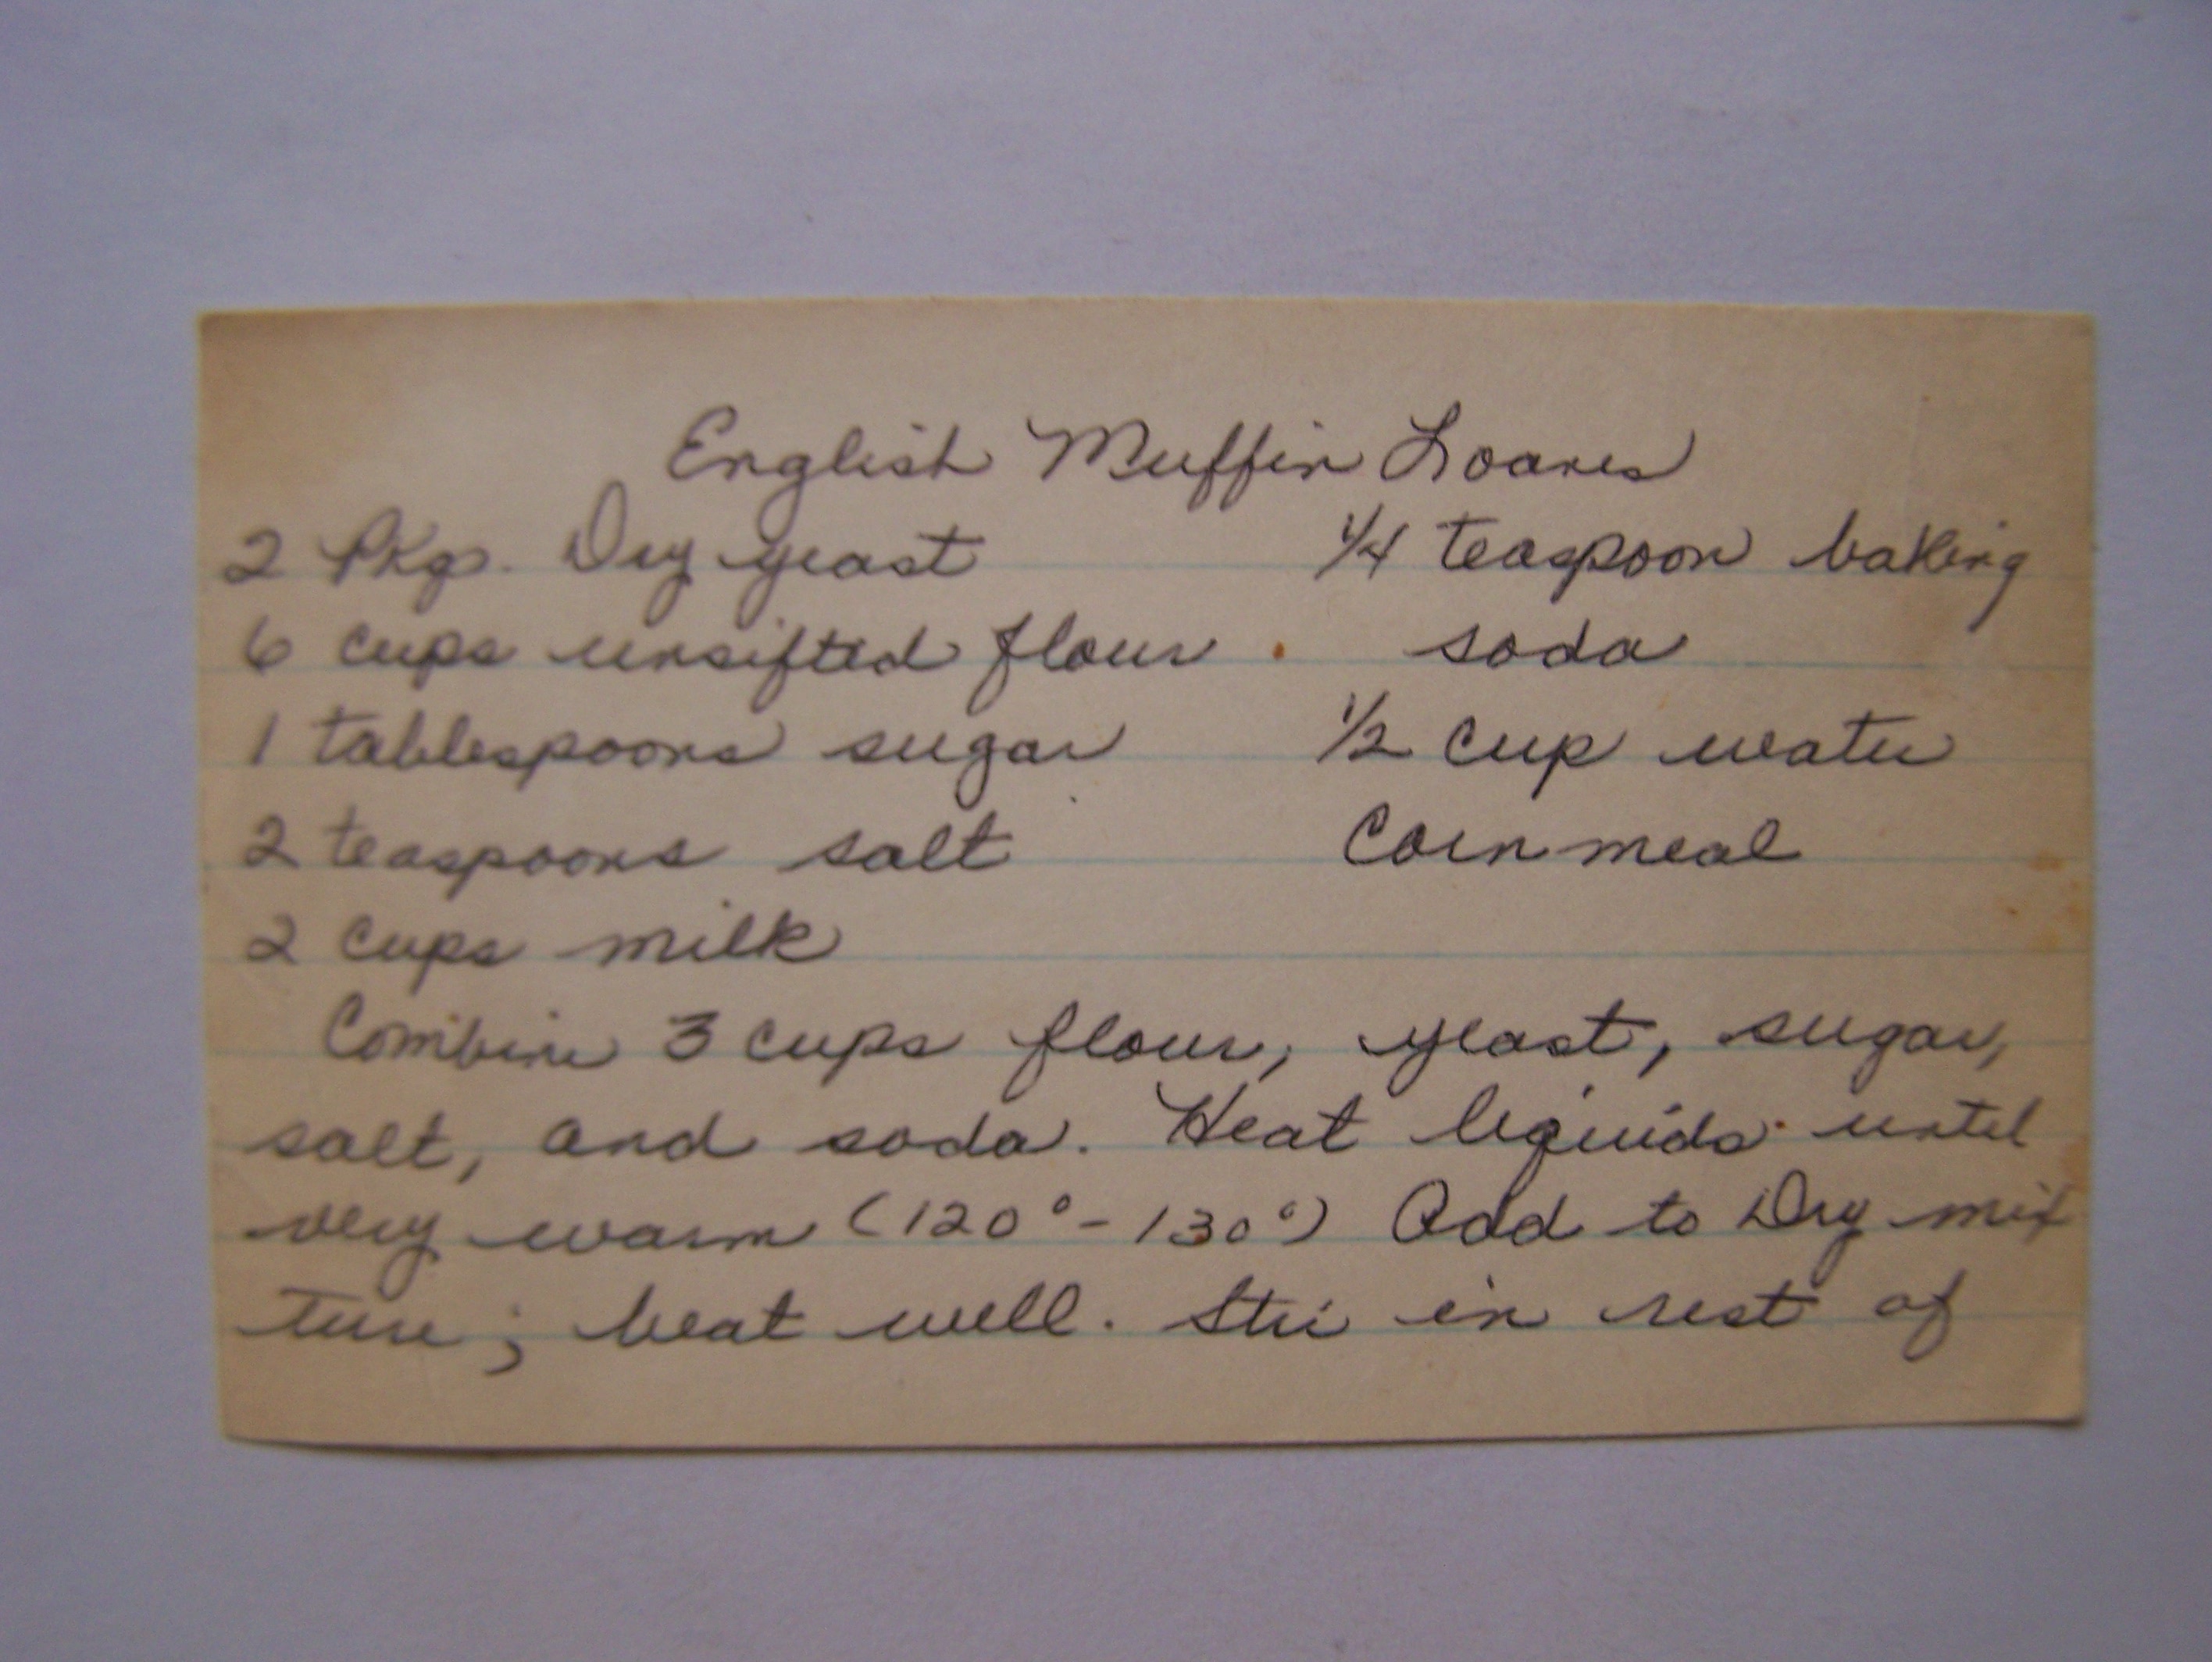 English Muffin Loaves
2 Pkgs. Dry yeast
6 cups unsifted flour
1 tablespoons sugar
2 teaspoons salt
2 cups milk
1/4 teaspoon baking
soda
1/2 cup water
Cornmeal
Combine 3 cups flour, yeast, sugar,
salt, and soda. Heat liquids until
very warm (120°-130°) Add to Dry mix
ture; beat well. Stir in rest of